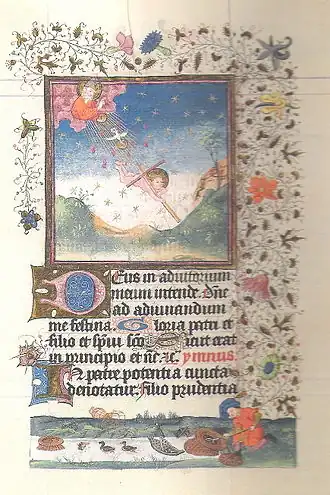 Deus in adiutorium
meum intende. Dn̄e
ad adiuuandum
me festina. Gloria patri et
filio et sp̄iui sc̄o Sicut erat
in principio et nc̄. ymnus.
In patre potentia cuncta
denotatur. Filio prudentia